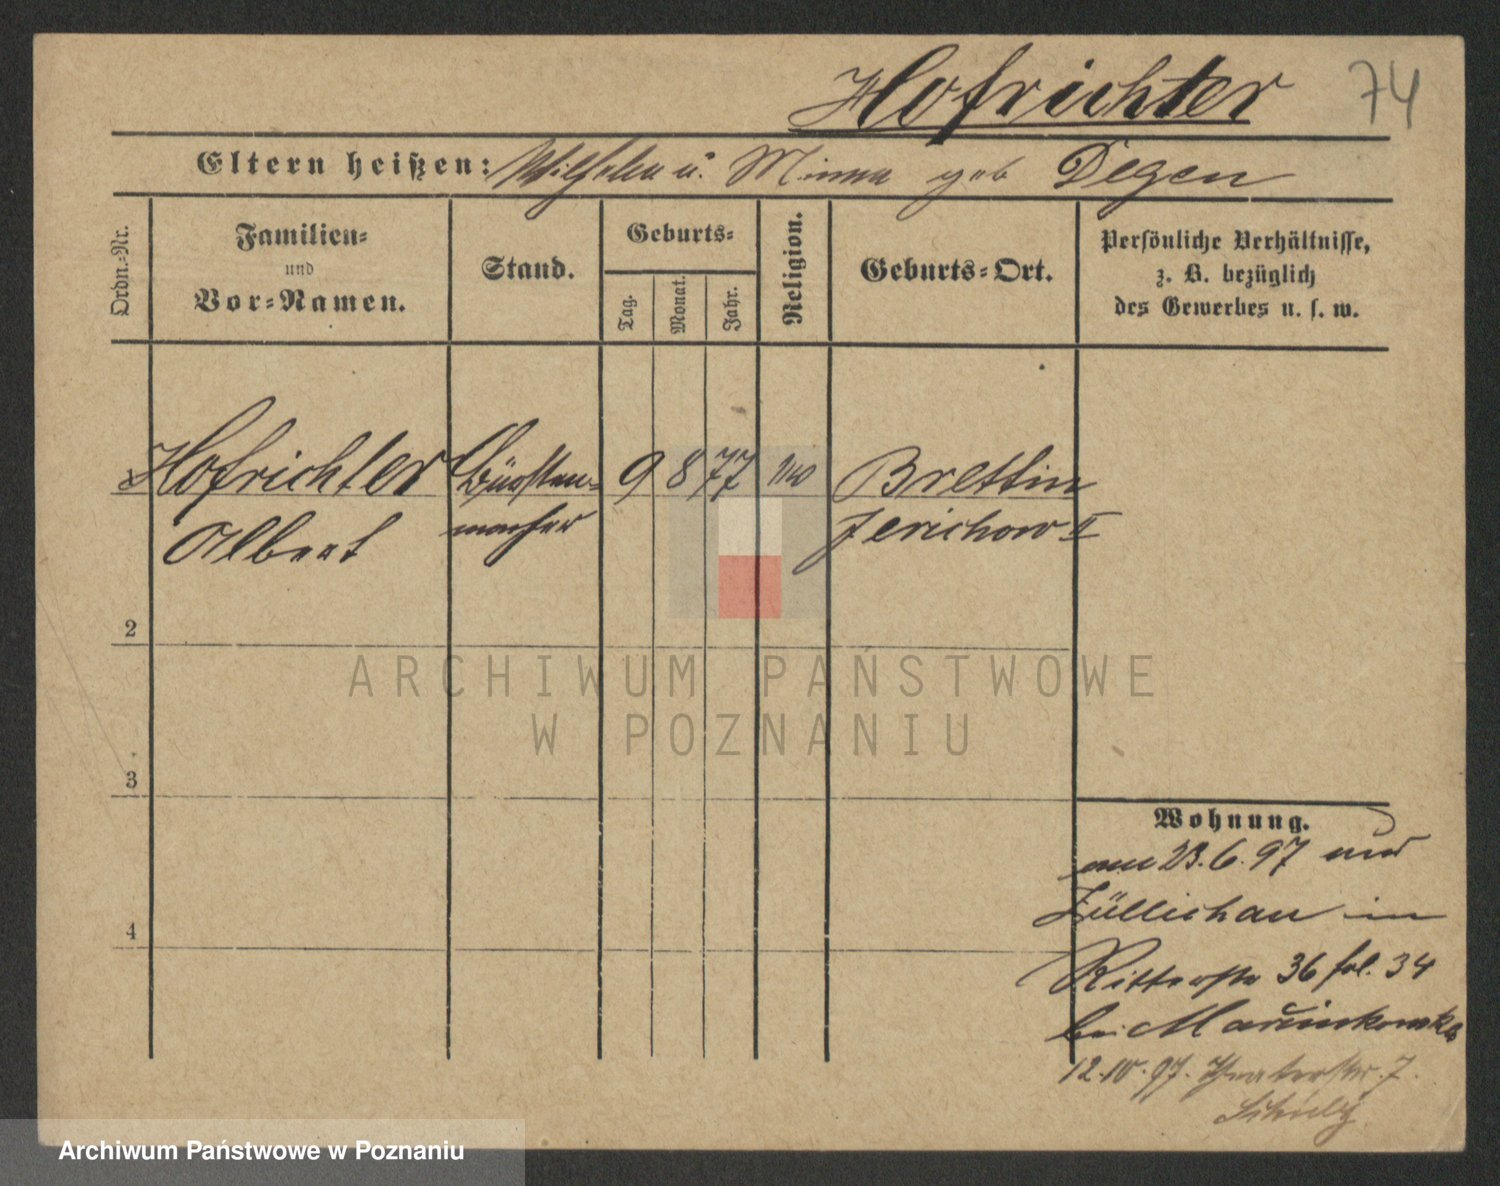 Hofrichter 74
Eltern heißen: Wilhelm u. Minna geb Degen
Ordn.-Nr.
Familien-
und
Vor-Namen.
Stand.
Geburts-
Tag.
Monat.
Jahr.
Religion.
Geburts-Ort.
Persönliche Verhältnisse,
z. B. bezüglich
des Gewerbes u. s. w.
1 Hofrichter Bürsten- 9 8 77 Brettin
Albert macher Jerichow II
2
3
4
ARCHIWUM PAŃSTWOWE
W POZNANIU
Wohnung.
23.6.97
Züllichau in
Ritterstr 36 fol. 34
bei Marcinkowska
12.10.97. Theaterstr. 7.
Archiwum Państwowe w Poznaniu